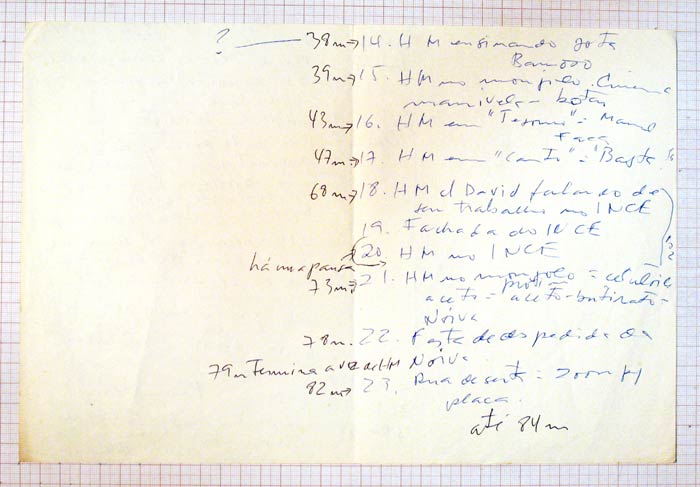 ? — 38m→ 14. HM ensinando
Barroso
39m→ 15. HM no monjolo. Cinema
manivela = botas
43m→ 16. HM em "Tesouro" = Manuel
Faca
47m→ 17. HM em "Canto" = "Basta
68m→ 18. HM c/ David falando de
seu trabalho no INCE
19. Fachada do INCE
20 HM no INCE
há uma pausa
73m→ 21. HM no monjolo =
aceto = aceto-butirato =
Noiva
78m. 22. Festa de despedida da
79m termina a voz de HM Noiva
82m→ 23. Rua deserta = zoom p/
placa.
até 84m